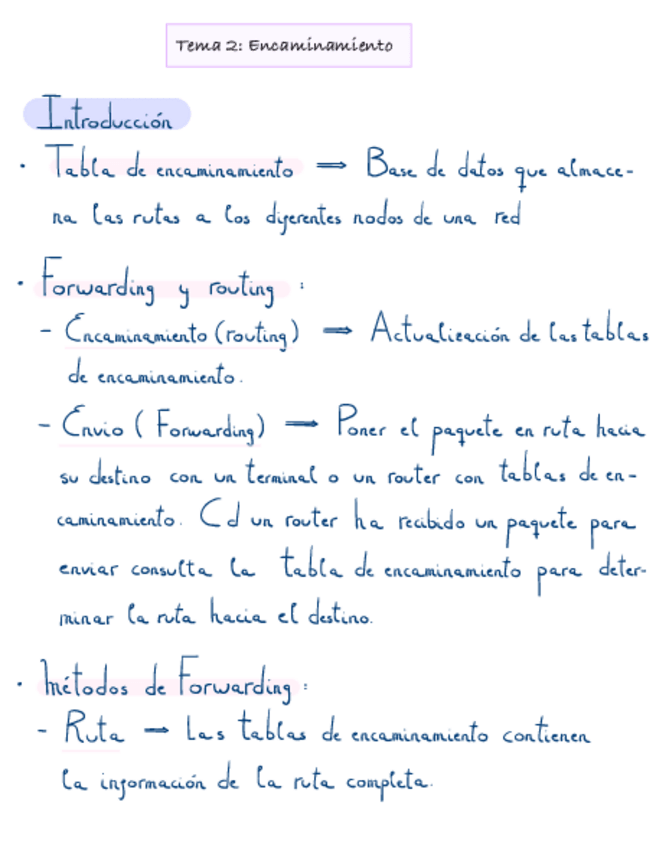 Tema 2: Encaminamiento
Introducción
· Tabla de encaminamiento ⇒ Base de datos que almace-
na las rutas a los diferentes nodos de una red
· Forwarding y routing :
- Encaminamiento (routing) ⇒ Actualización de las tablas
de encaminamiento.
- Envio ( Forwarding) ⇒ Poner el paquete en ruta hacia
su destino con un terminal o un router con tablas de en-
caminamiento. Cd un router ha recibido un paquete para
enviar consulta la tabla de encaminamiento para deter-
minar la ruta hacia el destino.
· Métodos de Forwarding :
- Ruta → Las tablas de encaminamiento contienen
la información de la ruta completa.